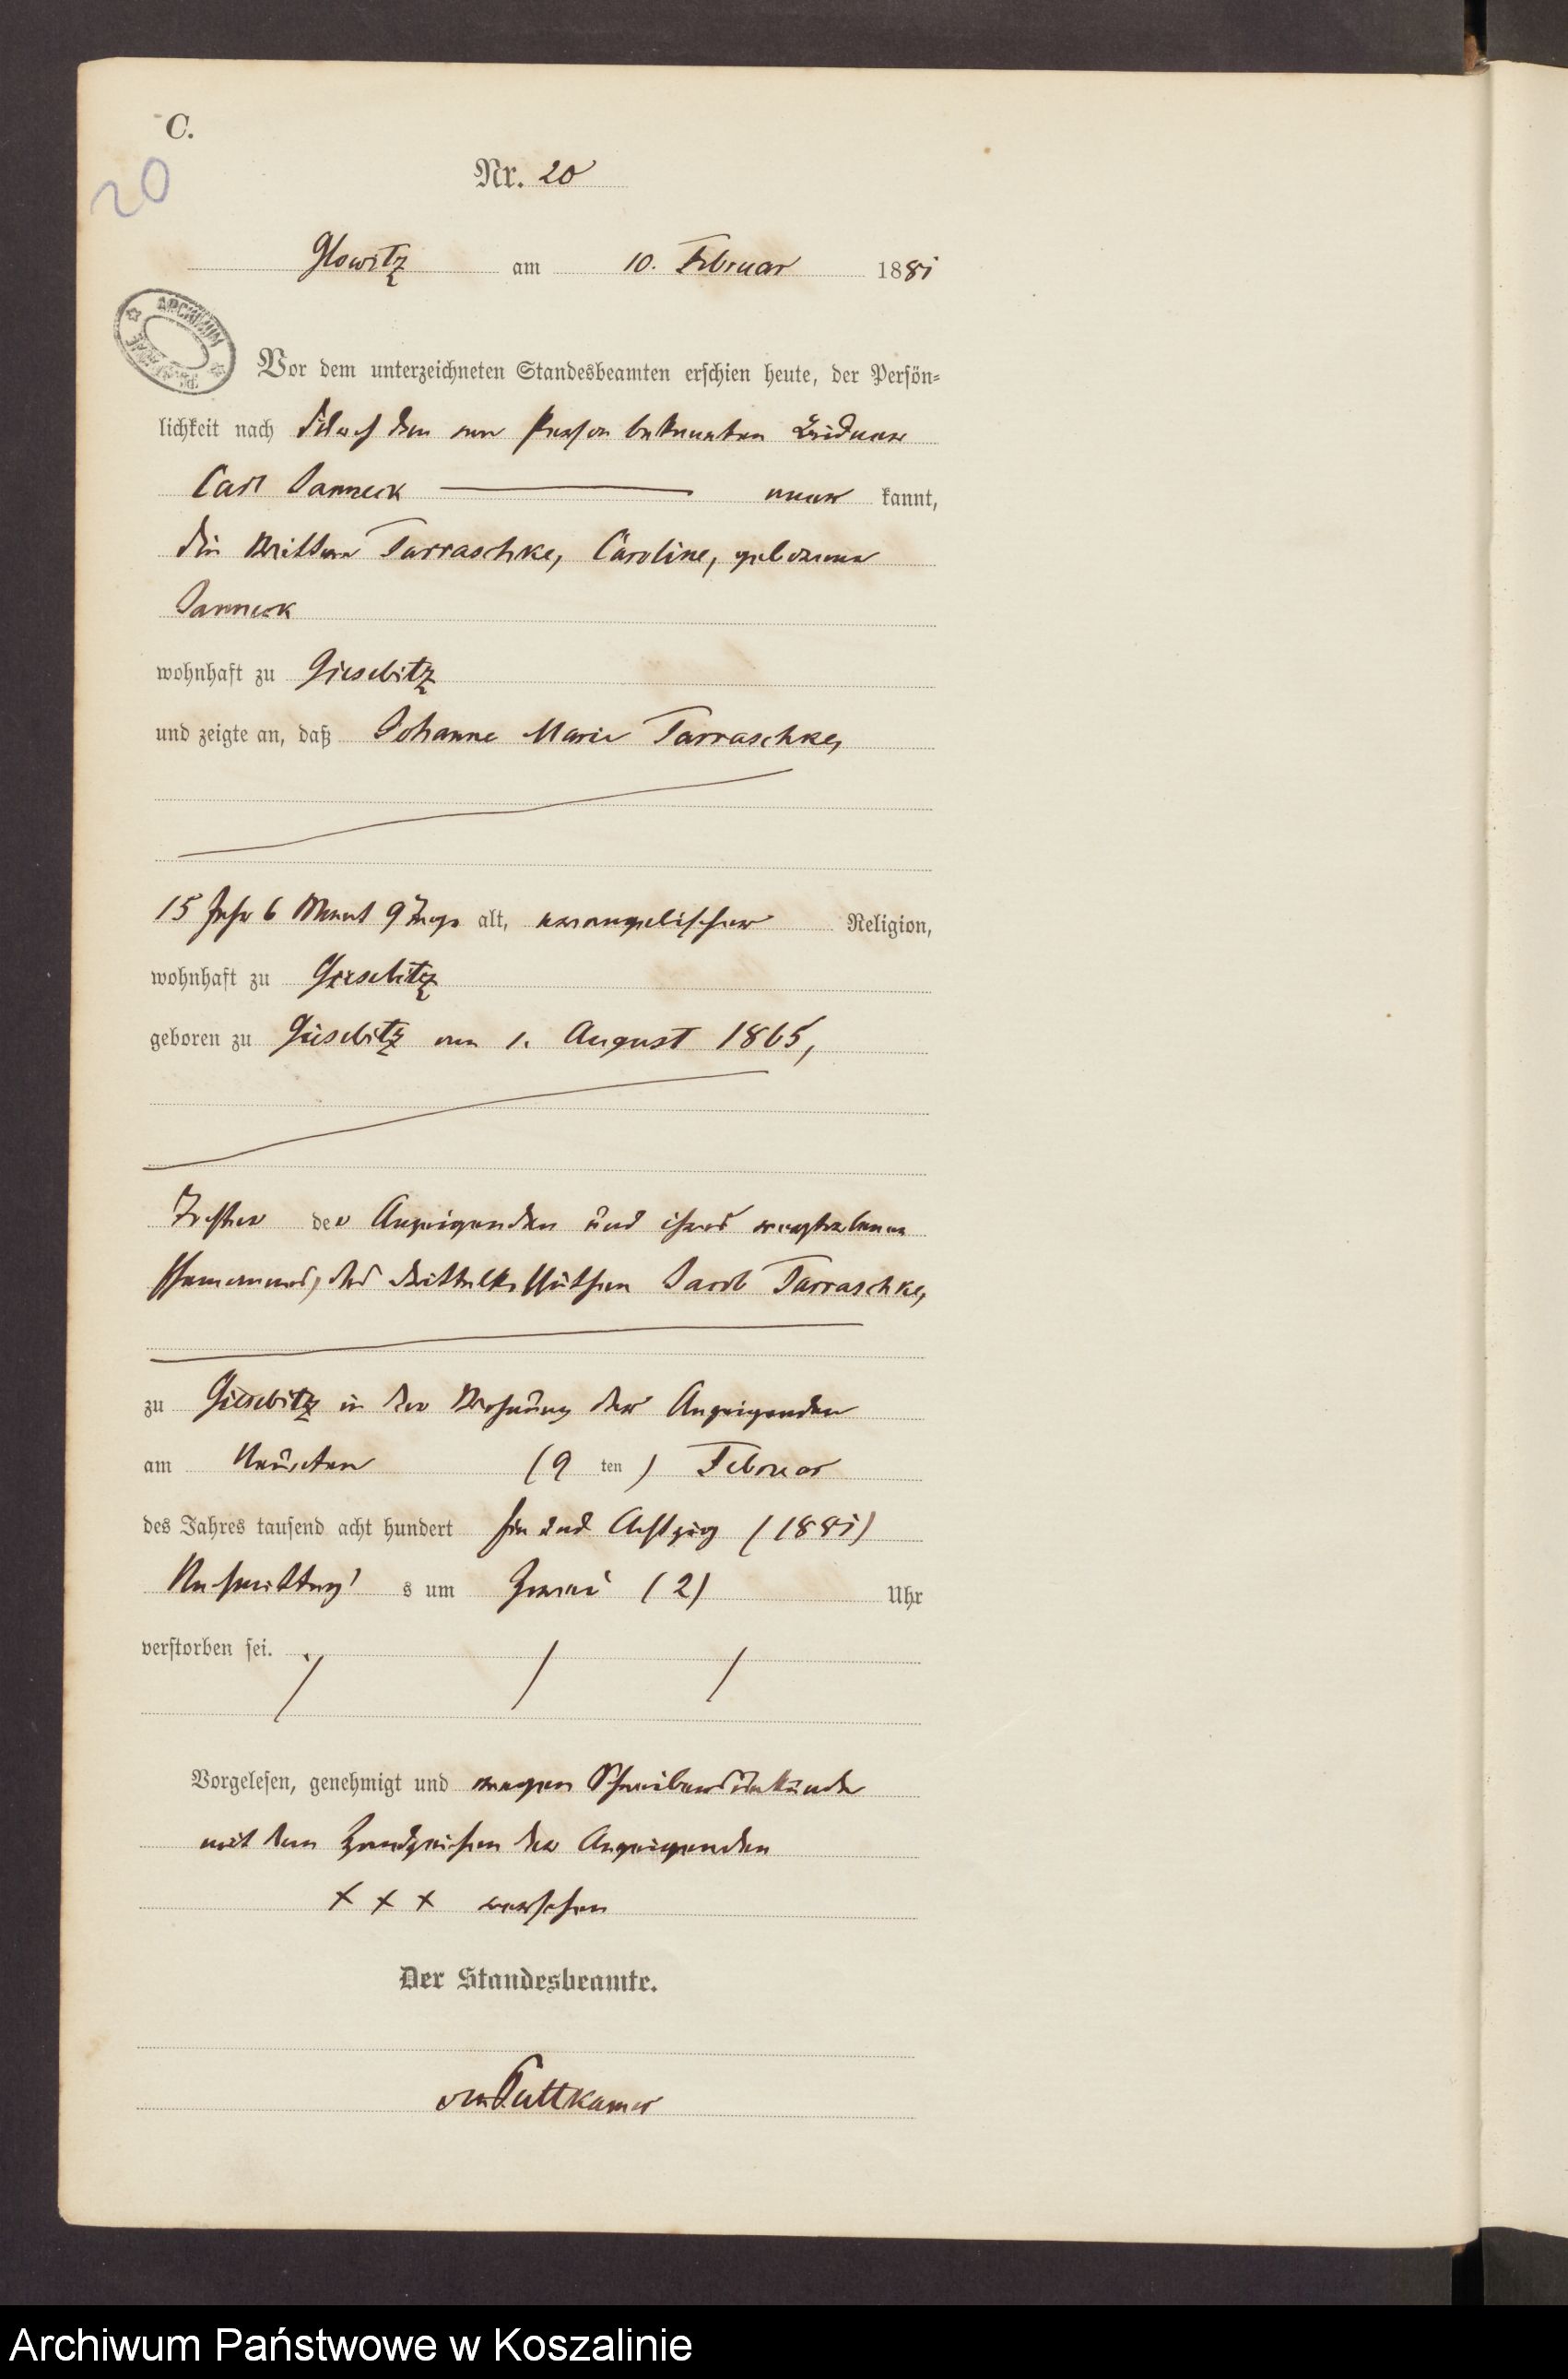 C.
20
Nr. 20
Glowitz am 10. Februar 1881
ARCHIWUM
Vor dem unterzeichneten Standesbeamten erschien heute, der Persön-
lichkeit nach durch den von Person bekannten Büdner
Carl Janneck aner kannt,
die Wittwe Tarraschke, Caroline, geborene
Janneck
wohnhaft zu Giesebitz
und zeigte an, daß Johanne Marie Tarraschke,
15 Jahr 6 Monat 9 Tage alt, evangelischer Religion,
wohnhaft zu Giesebitz
geboren zu Giesebitz am 1. August 1865,
Tochter der Anzeigenden und ihres verstorbenen
Ehemannes, des Jacob Tarraschke,
zu Giesebitz in der Wohnung der Anzeigenden
am Neunten (9 ten) Februar
des Jahres tausend acht hundert ein und Achtzig (1881)
Nachmittag's um Zwei (2) Uhr
verstorben sei.
Vorgelesen, genehmigt und wegen Schreibensunkunde
mit dem Handzeichen der Anzeigenden
x x x versehen
Der Standesbeamte.
von Puttkamer
Archiwum Państwowe w Koszalinie